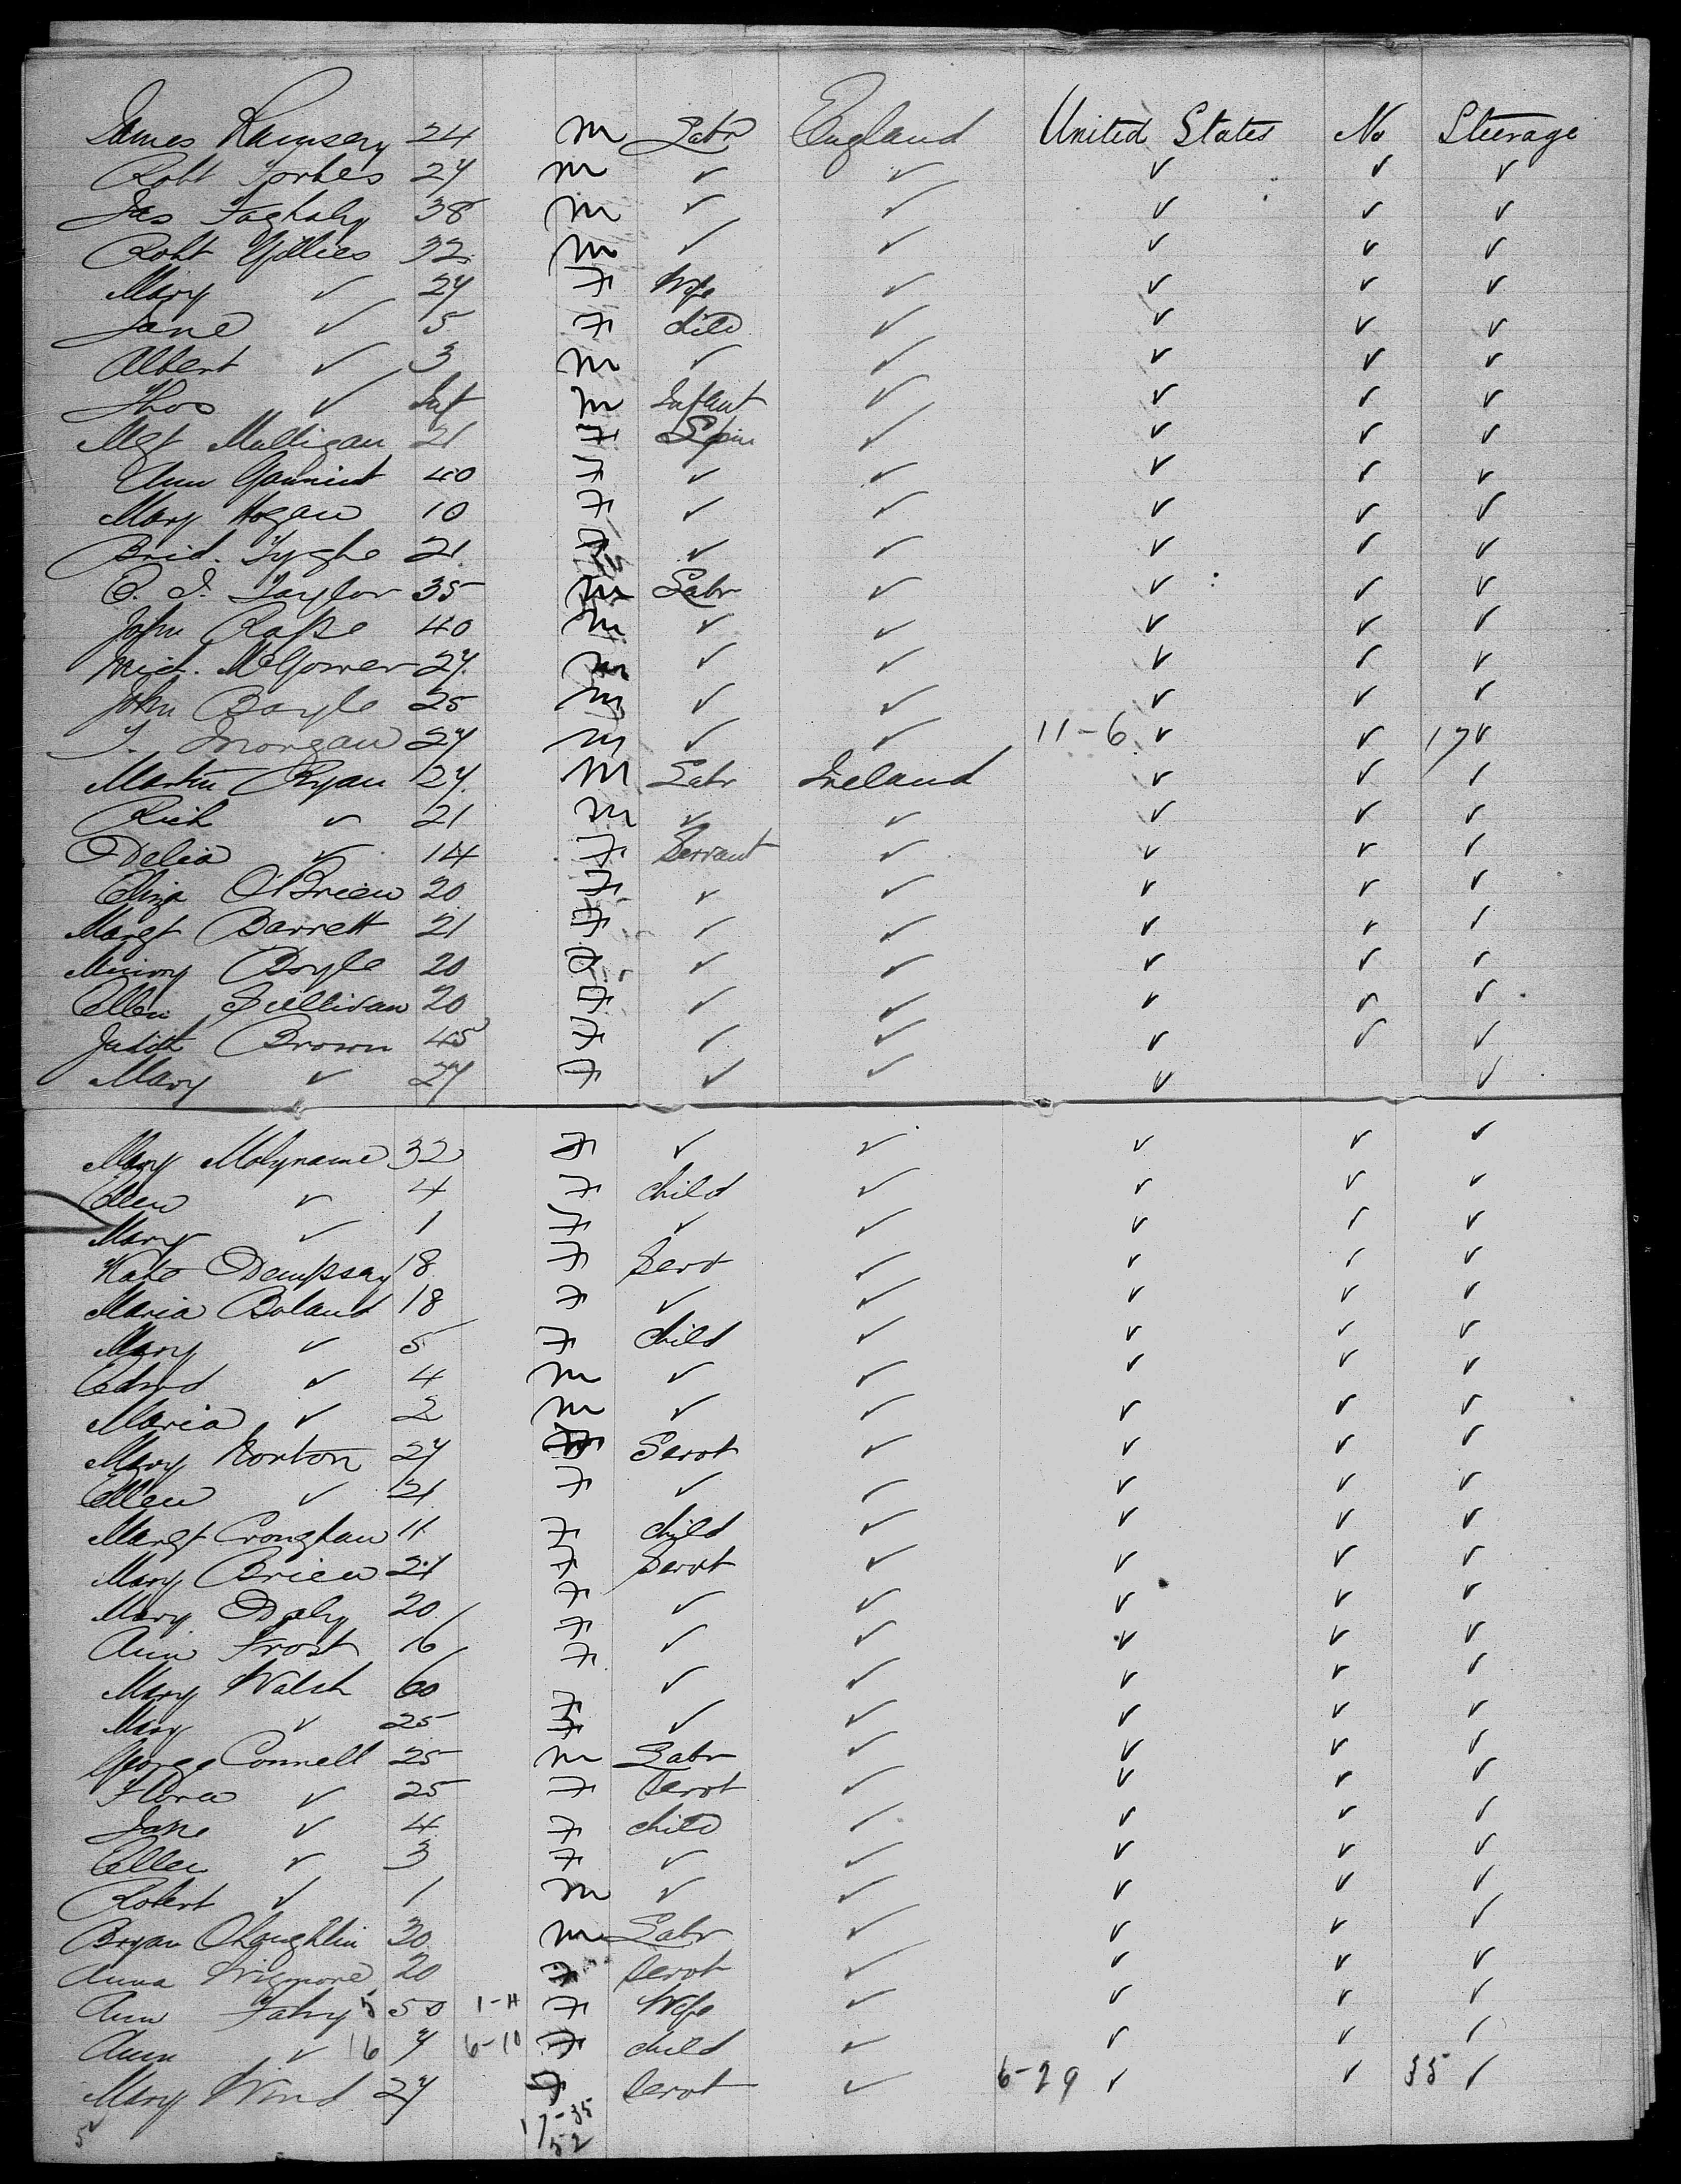 James Ramsey 24 m Labr England United States No Steerage
Robt Forbes 27 m ✓ ✓ ✓ ✓ ✓
Jas 38 m ✓ ✓ ✓ ✓ ✓
Robt Gillies 32 m ✓ ✓ ✓ ✓ ✓
Mary ✓ 27 F Wife ✓ ✓ ✓ ✓
Jane ✓ 5 F child ✓ ✓ ✓ ✓
Albert ✓ 3 m ✓ ✓ ✓ ✓ ✓
Thos ✓ Inf m Infant ✓ ✓ ✓ ✓
Mgt Mulligan 21 F Spin ✓ ✓ ✓ ✓
Ann 40 F ✓ ✓ ✓ ✓ ✓
Mary Hogan 10 F ✓ ✓ ✓ ✓ ✓
Brid. Tyghe 21 F ✓ ✓ ✓ ✓ ✓
Taylor 35 m Labr ✓ ✓ ✓ ✓
John Rape 40 m ✓ ✓ ✓ ✓ ✓
Mich. McGower 27 m ✓ ✓ ✓ ✓ ✓
John Boyle 25 m ✓ ✓ ✓ ✓ ✓
T. Morgan 27 m ✓ ✓ 11-6 ✓ ✓ 17 ✓
Martin Ryan 27 m Labr Ireland ✓ ✓ ✓
Rich ✓ 21 m ✓ ✓ ✓ ✓ ✓
Delia ✓ 14 F Servant ✓ ✓ ✓ ✓
Eliza O'Brien 20 F ✓ ✓ ✓ ✓ ✓
Margt Barrett 21 F ✓ ✓ ✓ ✓ ✓
Boyle 20 F ✓ ✓ ✓ ✓ ✓
Ellen Sullivan 20 F ✓ ✓ ✓ ✓ ✓
Judith Brown 45 F ✓ ✓ ✓ ✓ ✓
Mary ✓ 27 F ✓ ✓ ✓ ✓
Mary Molyname 32 F ✓ ✓ ✓ ✓ ✓
Ellen ✓ 4 F child ✓ ✓ ✓ ✓
Mary ✓ 1 F ✓ ✓ ✓ ✓ ✓
Kate Dempsay 18 F Servt ✓ ✓ ✓ ✓
Maria Boland 18 F ✓ ✓ ✓ ✓ ✓
Mary ✓ 5 F child ✓ ✓ ✓ ✓
Edwd ✓ 4 m ✓ ✓ ✓ ✓ ✓
Maria ✓ 2 m ✓ ✓ ✓ ✓ ✓
Mary Norton 27 F Servt ✓ ✓ ✓ ✓
Ellen ✓ 21 F ✓ ✓ ✓ ✓ ✓
Margt Croughan 11 F child ✓ ✓ ✓ ✓
Mary Brien 21 F Servt ✓ ✓ ✓ ✓
Mary Daly 20 F ✓ ✓ ✓ ✓ ✓
Ann Frost 16 F ✓ ✓ ✓ ✓ ✓
Mary Walsh 60 F ✓ ✓ ✓ ✓ ✓
Mary ✓ 25 F ✓ ✓ ✓ ✓ ✓
George Connell 25 m Labr ✓ ✓ ✓ ✓
Flora ✓ 25 F Servt ✓ ✓ ✓ ✓
Jane ✓ 4 F child ✓ ✓ ✓ ✓
Ellen ✓ 3 F ✓ ✓ ✓ ✓ ✓
Robert ✓ 1 m ✓ ✓ ✓ ✓ ✓
Bryan OLoughlin 30 m Labr ✓ ✓ ✓ ✓
Anna Wigmore 20 F Servt ✓ ✓ ✓ ✓
Ann Fahy 5 50 1-11 F Wife ✓ ✓ ✓ ✓
Ann ✓ 16 7 6-10 F child ✓ ✓ ✓ ✓
Mary Wind 27 F Servt ✓ 6-29 ✓ ✓ 35 ✓
17-35
52